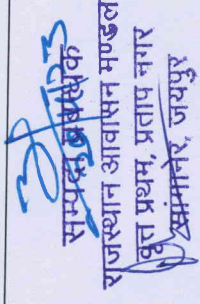 सम्पदा प्रबन्धक
राजस्थान आवासन मण्डल
वृत्त प्रथम, प्रताप नगर
सांगानेर, जयपुर